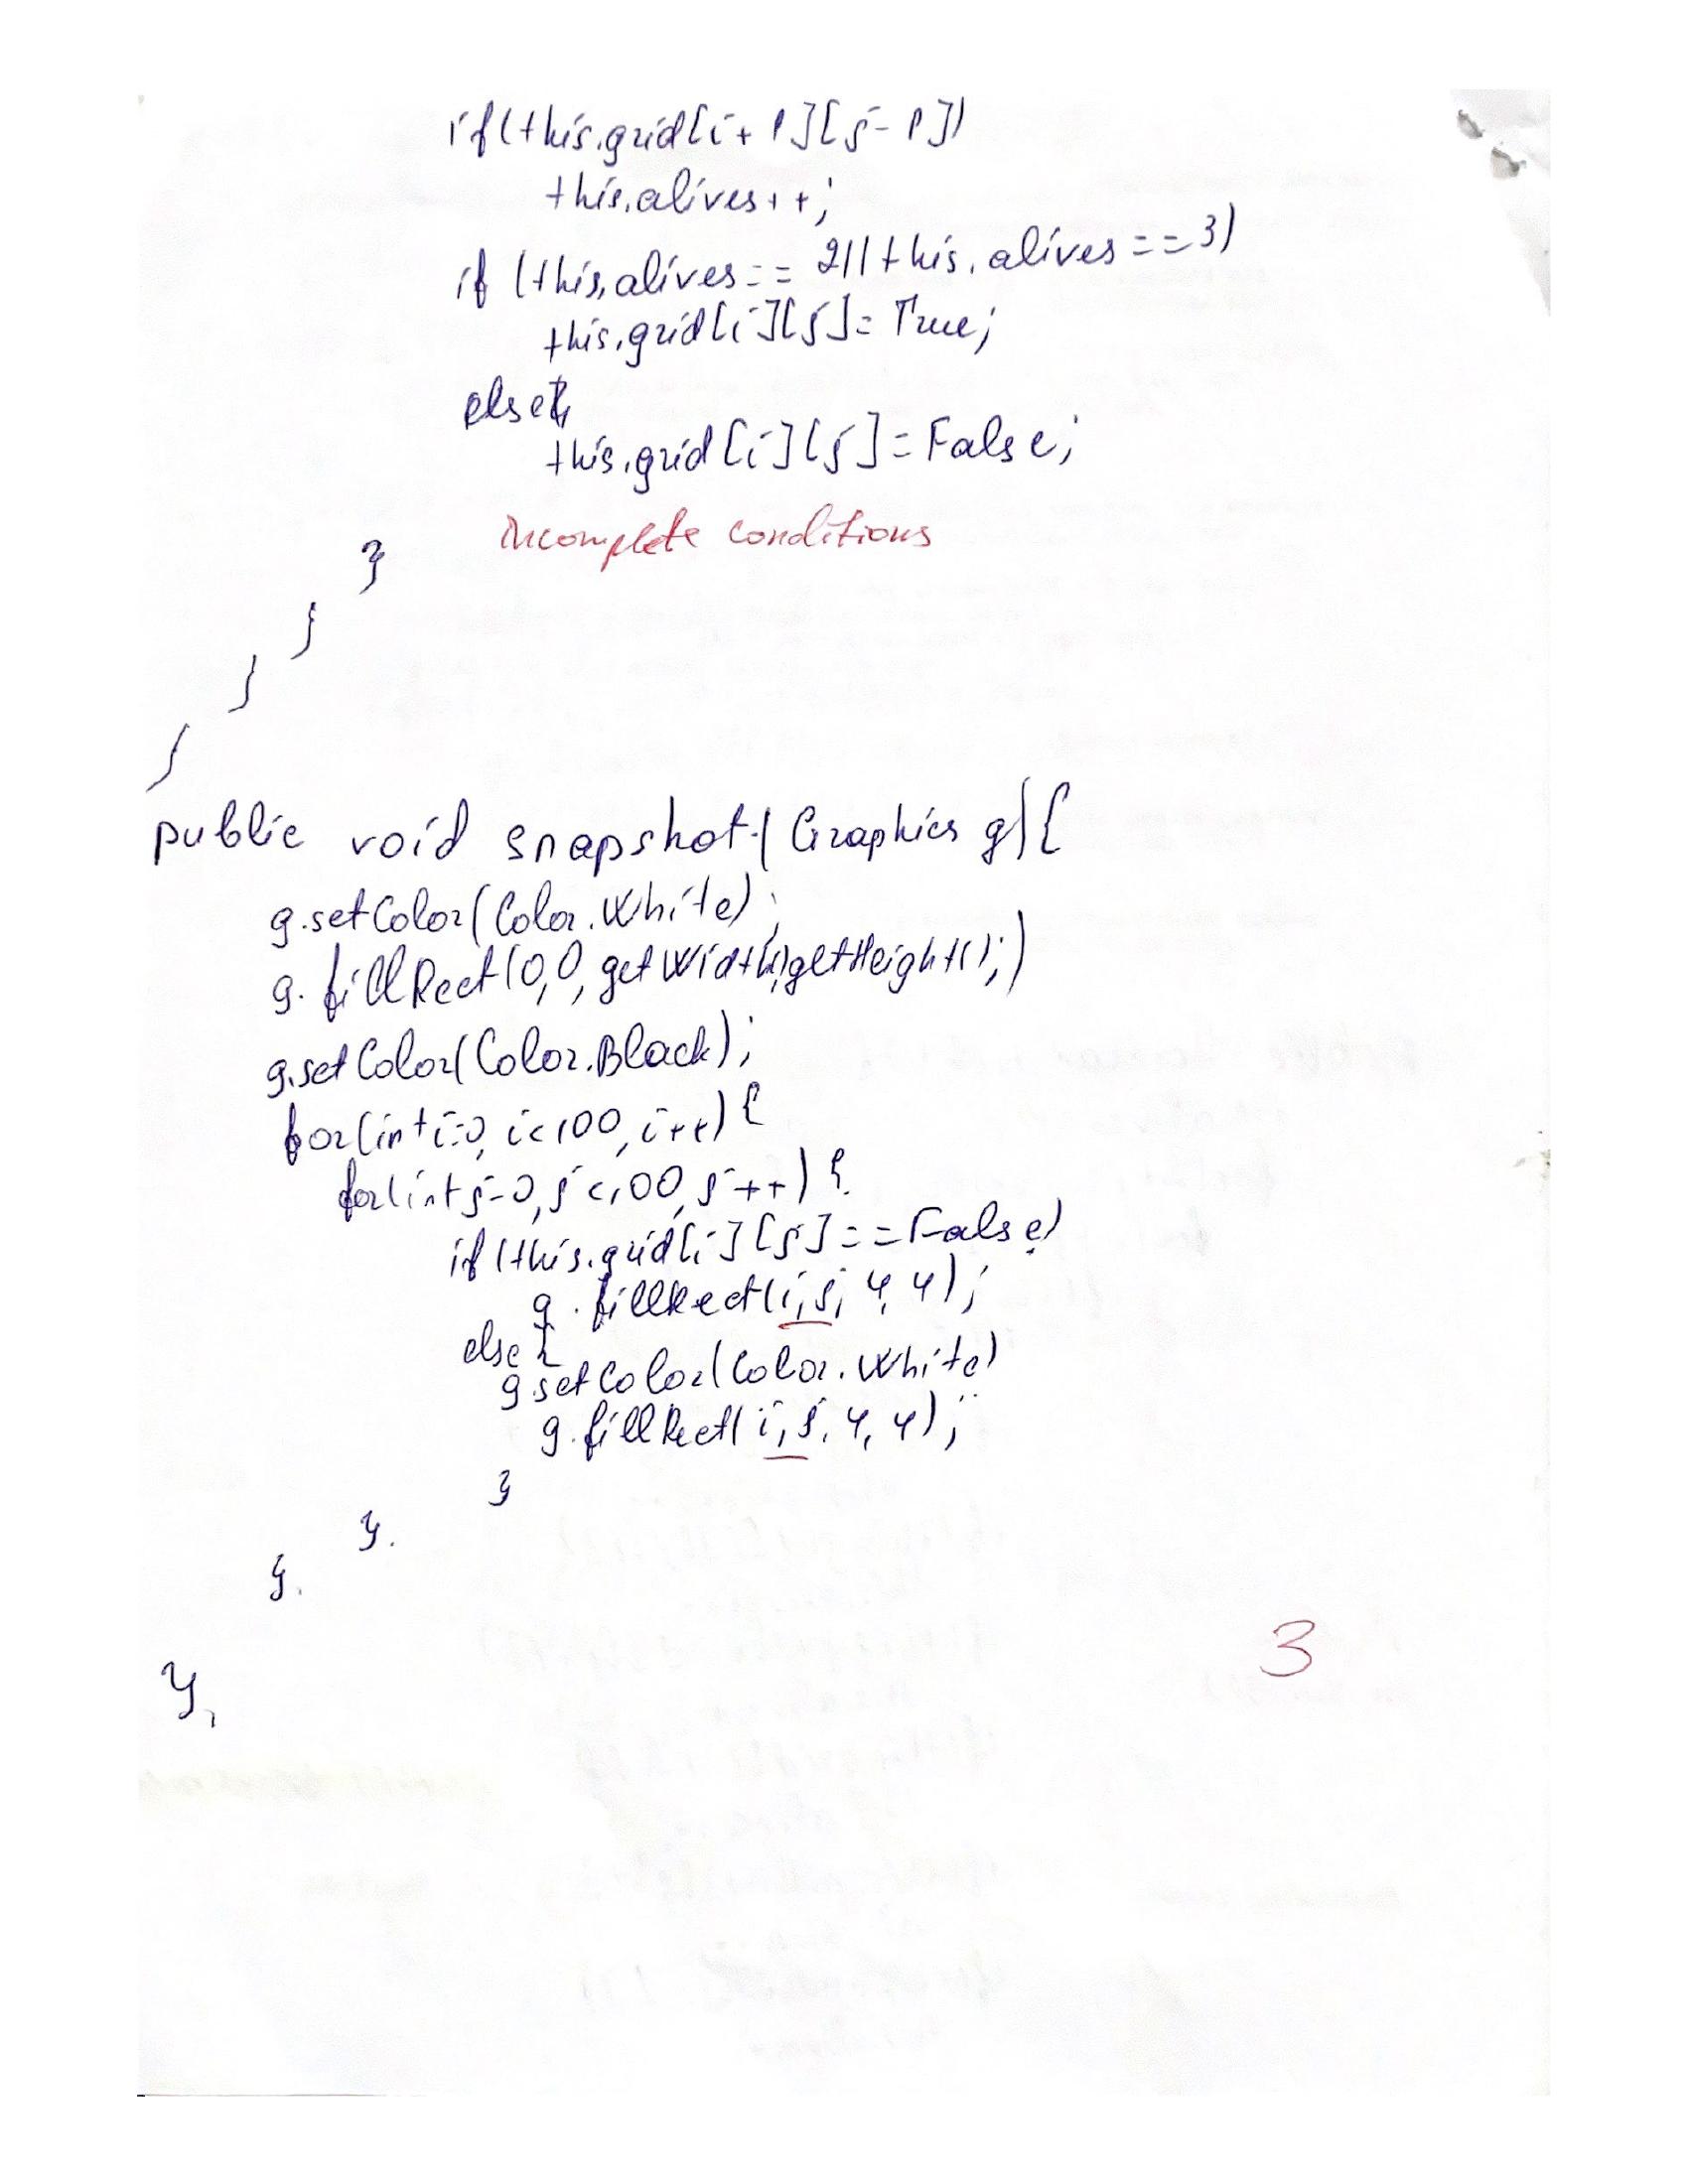 if(this.grid[i+1][j-1])
this.alives++;
if (this.alives == 2||this.alives==3)
this.grid[i][j]= True;
else{
this.grid[i][j]=False;
incomplete conditions
}
}
}
}
public void snapshot(Graphics g){
g.setColor(Color.White);
g.fillRect(0,0,getWidth(),getHeight();)
g.setColor(Color.Black);
for(int i=0, i<100, i++) {
for(int j=0, j<100, j++) {
if(this.grid[i][j]==False)
g.fillRect(i,j, 4,4);
else {
g.setColor(Color.White)
g.fillRect(i,j,4,4);
}
}
}
3
}